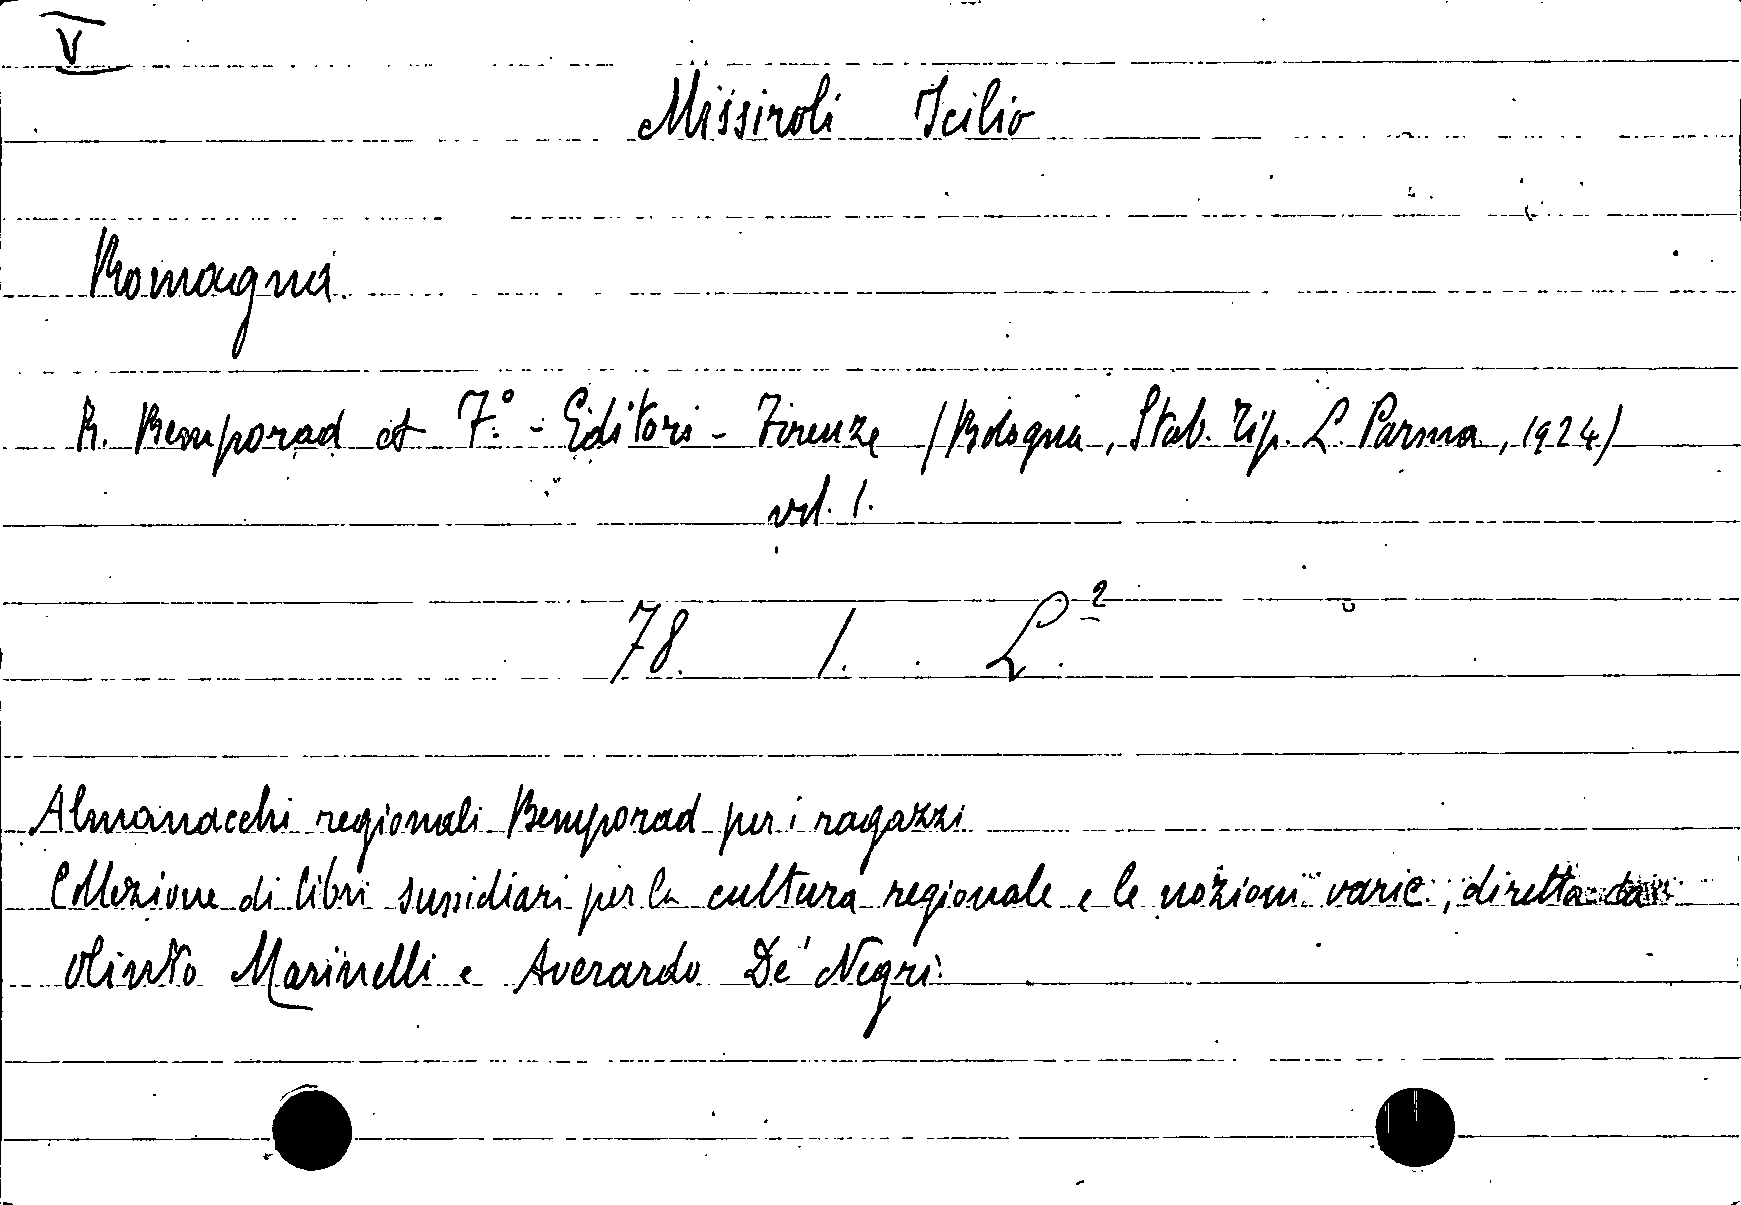 V
Missiroli Icilio
Romagna
R. Bemporad et F.° - Editori - Firenze (Bologna, Stab. Tip. L. Parma, 1924)
vol. 1.
78. 1. L.2
Almanacchi regionali Bemporad per i ragazzi
Collezione di libri sussidiari per la cultura regionale e le nozioni varie, diretta da
Olinto Marinelli e Averardo De' Negri.